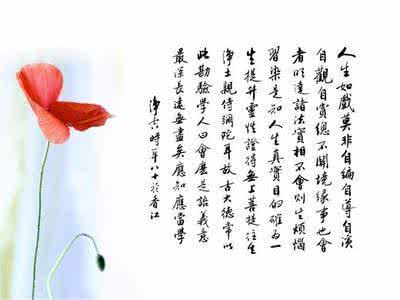 人生如戲莫非自編自導自演
自觀自賞總不開境緣事也會
者明達諸法實相不會則生煩惱
習染是知人生真實目的確為一
生提升靈性證得無上菩提往生
淨土親侍彌陀耳故古大德常以
此勘驗學人曰會麼是話義意
最深長遠無盡矣應知應當學
淨空時年八十於香江